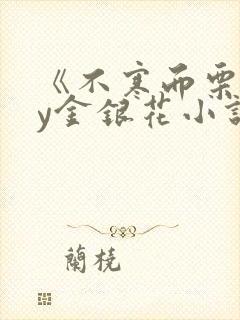 《不寒而栗
y金银花小説
蘭橈